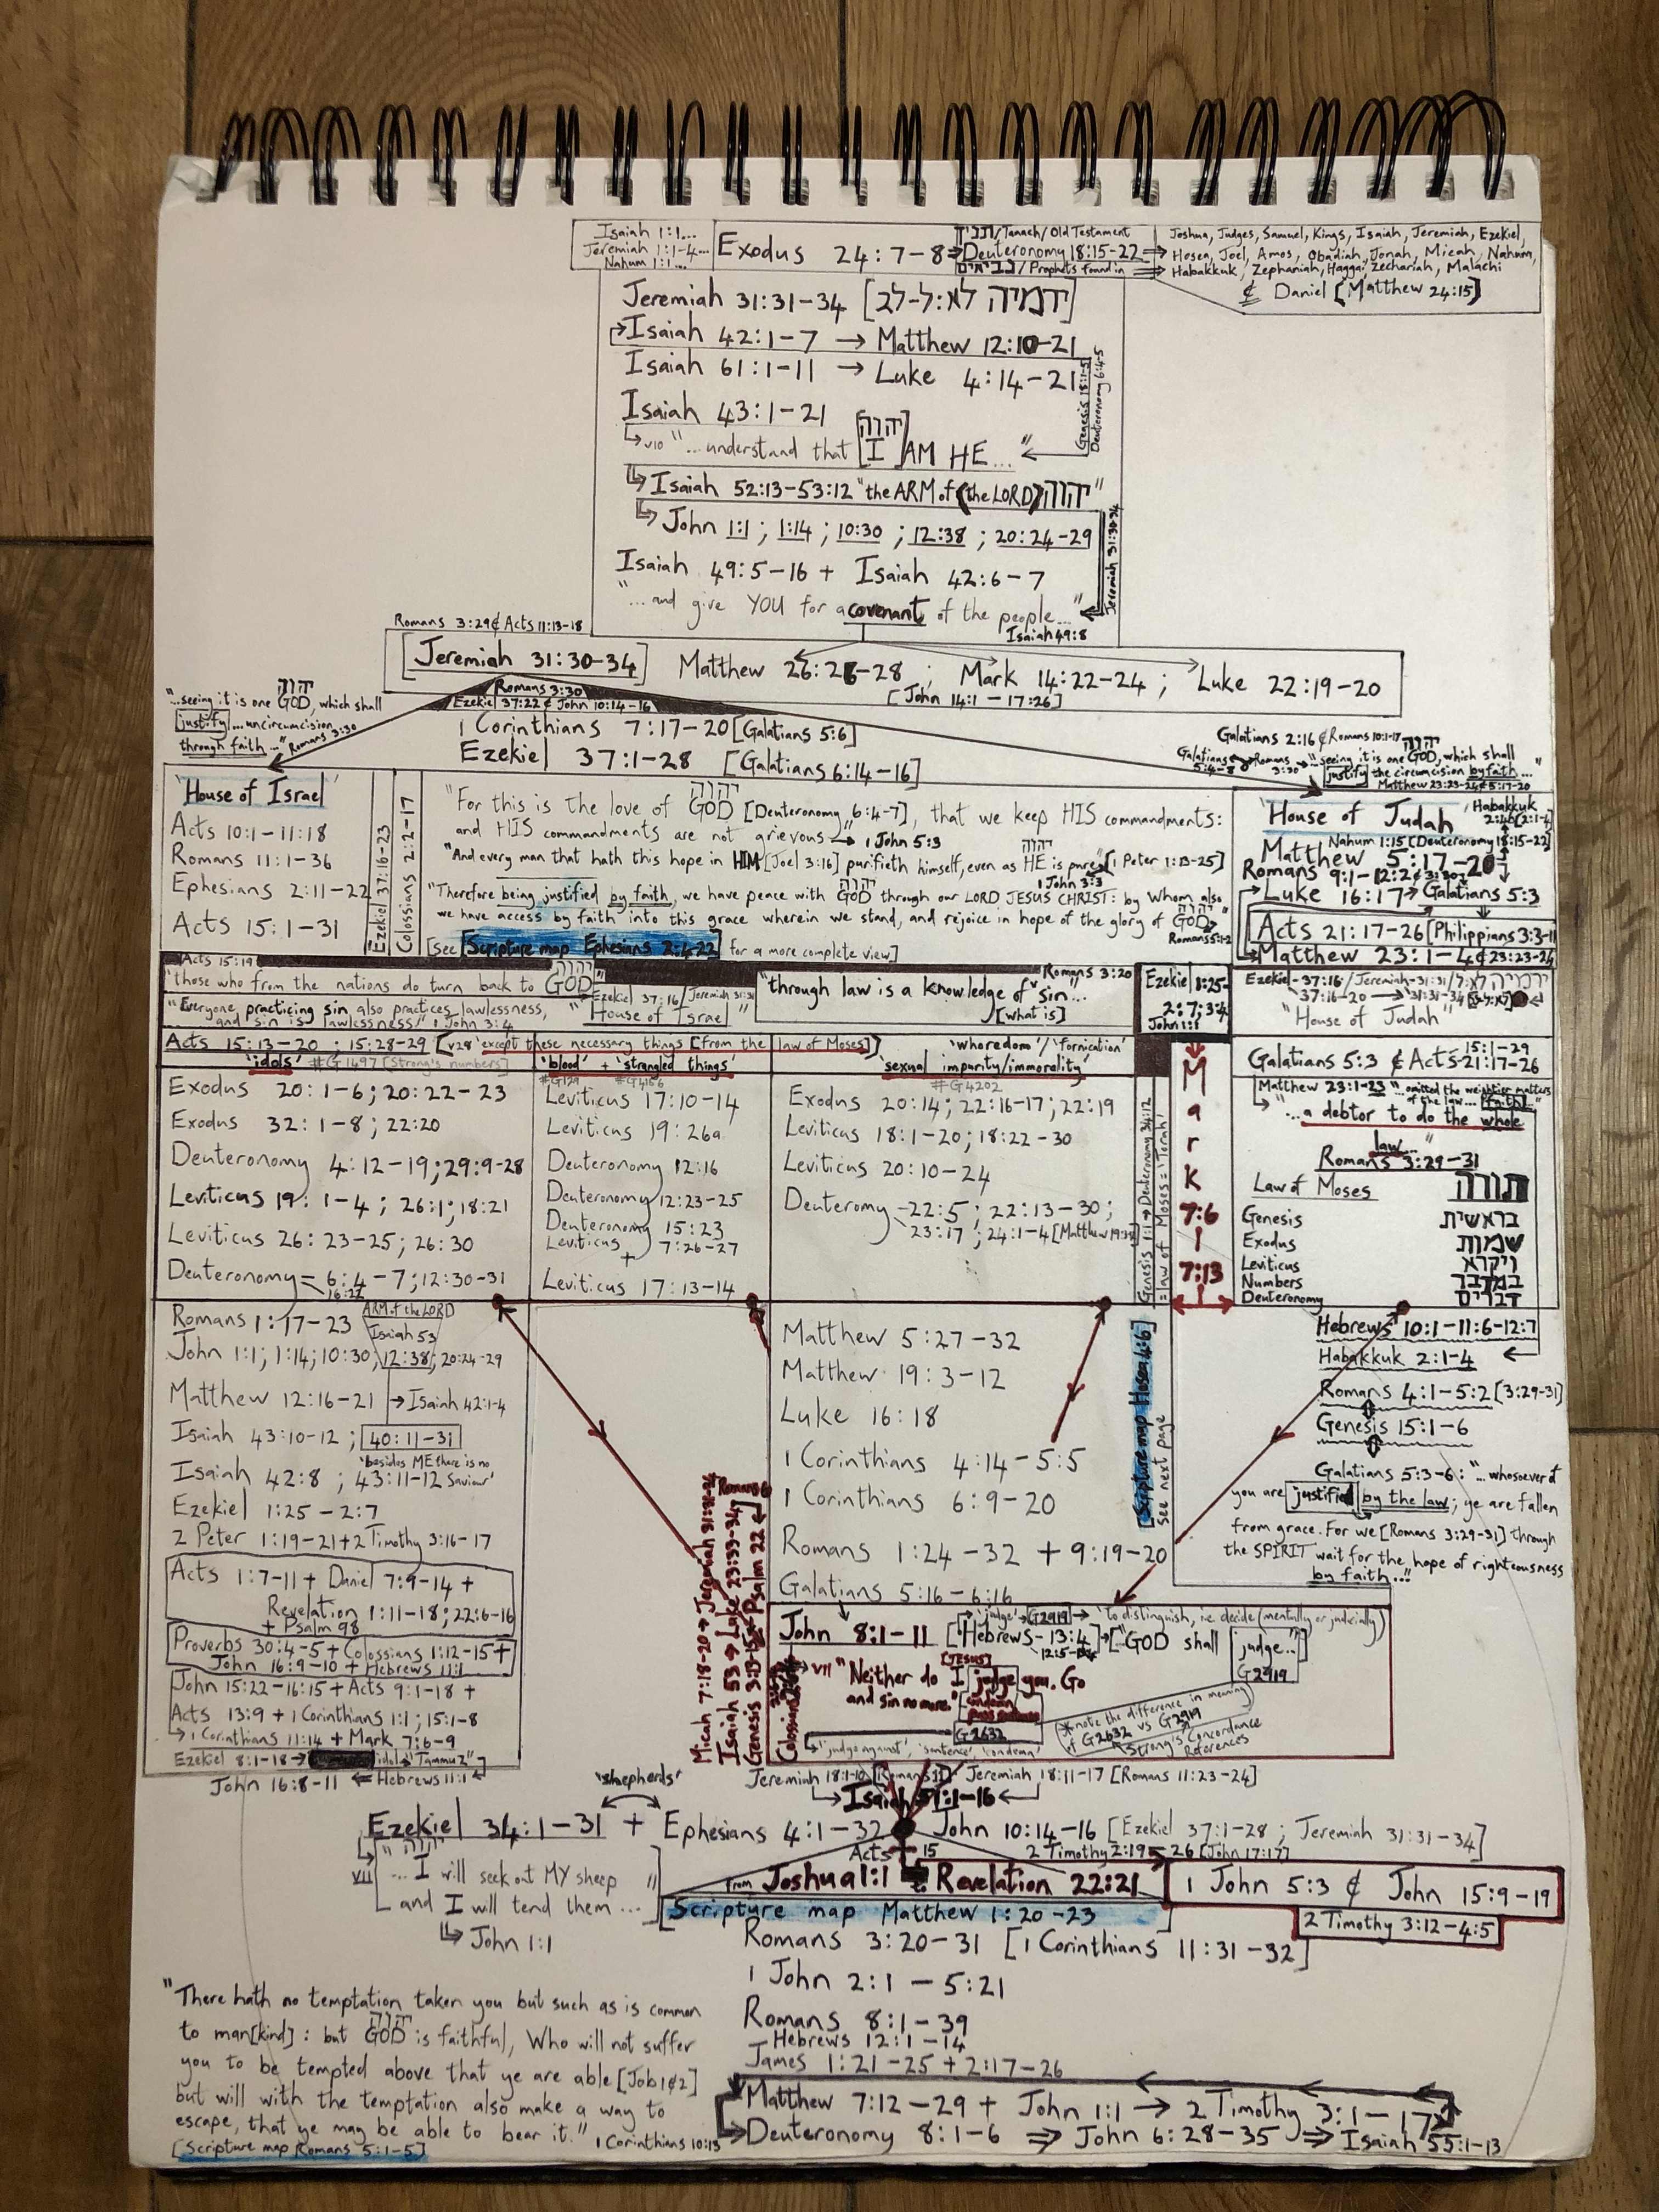 Isaiah 1:1...
Jeremiah 1:1-4...
Nahum 1:1...
Exodus 24:7-8
/Tanach/Old Testament
Deuteronomy 18:15-22
נביאים/Prophets found in
Joshua, Judges, Samuel, Kings, Isaiah, Jeremiah, Ezekiel,
Hosea, Joel, Amos, Obadiah, Jonah, Micah, Nahum,
Habakkuk, Zephaniah, Haggai, Zechariah, Malachi
& Daniel [Matthew 24:15]
Jeremiah 31:31-34 [ירמיה לא:ל-לב]
Isaiah 42:1-7 → Matthew 12:10-21
Isaiah 61:1-11 → Luke 4:14-21
Genesis 18:1-5
Deuteronomy 6:4-5
Isaiah 43:1-21
יהוה
↳ v10 "...understand that I AM HE..."
Isaiah 52:13-53:12 "the ARM of (the LORD) יהוה"
John 1:1 ; 1:14 ; 10:30 ; 12:38 ; 20:24-29
Isaiah 49:5-16 + Isaiah 42:6-7
Jeremiah 31:30-34
"...and give YOU for a covenant of the people..."
Isaiah 49:8
Romans 3:29 & Acts 11:13-18
[Jeremiah 31:30-34] Matthew 26:26-28 ; Mark 14:22-24 ; Luke 22:19-20
[John 14:1 - 17:26]
Romans 3:30
Ezekiel 37:22 & John 10:14-16
יהוה
"...seeing it is one GOD, which shall
justify ... uncircumcision
through faith..." Romans 3:30
1 Corinthians 7:17-20 [Galatians 5:6]
Ezekiel 37:1-28 [Galatians 6:14-16]
Galatians 2:16 & Romans 10:1-17
יהוה
Galatians 5:4-8
Romans 3:30
"...seeing it is one GOD, which shall
justify the circumcision by faith..."
Matthew 23:23-24 & 5:17-20
'House of Israel'
Acts 10:1-11:18
Romans 11:1-36
Ephesians 2:11-22
Acts 15:1-31
Ezekiel 37:16-23
Colossians 2:2-17
יהוה
"For this is the love of GOD [Deuteronomy 6:4-7], that we keep HIS commandments:
and HIS commandments are not grievous" → 1 John 5:3
יהוה
"And every man that hath this hope in HIM [Joel 3:16] purifieth himself, even as HE is pure" [1 Peter 1:13-25]
1 John 3:3
יהוה
"Therefore being justified by faith, we have peace with GOD through our LORD JESUS CHRIST: by Whom also
we have access by faith into this grace wherein we stand, and rejoice in hope of the glory of GOD"
יהוה
Romans 5:1-2
[See [Scripture map Ephesians 2:4-22] for a more complete view]
'House of Judah'
Habakkuk
Nahum 1:15 [Deuteronomy 18:15-22]
Matthew 5:17-20
Romans 9:1-12:2
Luke 16:17 → Galatians 5:3
Acts 21:17-26 [Philippians 3:3-11
Matthew 23:1-4 & 23:23-24
Acts 15:19
יהוה
'those who from the nations do turn back to GOD'
"Everyone practicing sin also practices lawlessness,
and sin is lawlessness" 1 John 3:4
Ezekiel 37:16/Jeremiah 31:31
"House of Israel"
"through law is a knowledge of sin...
Romans 3:20
[what is]
Ezekiel 1:25-
2:7; 3:4
John 1:1
Ezekiel-37:16/Jeremiah-31:31/
37:16-20 → 31:31-34
"House of Judah"
Acts 15:13-20 ; 15:28-29 [v28 'except these necessary things [from the law of Moses]]
'idols' #G1497 [Strong's numbers]
'blood' + 'strangled things'
#G129 #G4156
'whoredom'/'fornication'
'sexual impurity/immorality'
#G4202
Exodus 20:1-6; 20:22-23
Exodus 32:1-8; 22:20
Deuteronomy 4:12-19; 29:9-28
Leviticus 19:1-4 ; 26:1; 18:21
Leviticus 26:23-25; 26:30
Deuteronomy 6:4-7; 12:30-31
16:22
Leviticus 17:10-14
Leviticus 19:26a
Deuteronomy 12:16
Deuteronomy 12:23-25
Deuteronomy 15:23
Leviticus 7:26-27
+
Leviticus 17:13-14
Exodus 20:14; 22:16-17; 22:19
Leviticus 18:1-20; 18:22-30
Leviticus 20:10-24
Deuteromy 22:5 ; 22:13-30;
23:17 ; 24:1-4 [Matthew
Genesis 1:1 → Deuteronomy 34:12
= law of Moses = 'Torah'
M
a
r
K
7:6
|
7:13
Galatians 5:3 & Acts 15:1-29
21:17-26
Matthew 23:1-23 "...omitted the weightier matters
of the law... [faith]..."
"...a debtor to do the whole
law..."
Romans 3:29-31
Law of Moses תורה
Genesis בראשית
Exodus שמות
Leviticus ויקרא
Numbers במדבר
Deuteronomy דברים
Romans 1:17-23
ARM of the LORD
Isaiah 53
John 1:1; 1:14; 10:30; 12:38; 20:24-29
Matthew 12:16-21 → Isaiah 42:1-4
Isaiah 43:10-12 ; 40:11-31
'besides ME there is no
Saviour'
Isaiah 42:8 ; 43:11-12
Ezekiel 1:25 - 2:7
2 Peter 1:19-21 + 2 Timothy 3:16-17
Acts 1:7-11 + Daniel 7:9-14 +
Revelation 1:11-18; 22:6-16
+ Psalm 98
Proverbs 30:4-5 + Colossians 1:12-15 +
John 16:9-10 + Hebrews 11:1
John 15:22-16:15 + Acts 9:1-18 +
Acts 13:9 + 1 Corinthians 1:1 ; 15:1-8
↳ 1 Corinthians 11:14 + Mark 7:6-9
Ezekiel 8:1-18 → idol 'Tammuz'
John 16:8-11 ⇐ Hebrews 11:1
Micah 7:18-20 → Jeremiah 31:31-34
Isaiah 53 → Luke 23:33-34
Genesis 3:13-15 + Psalm 22
Matthew 5:27-32
Matthew 19:3-12
Luke 16:18
1 Corinthians 4:14-5:5
1 Corinthians 6:9-20
Romans 1:24-32 + 9:19-20
Galatians 5:16-6:16
[Scripture map Hosea 4:6]
See next page
Hebrews 10:1-11:6-12:7
Habakkuk 2:1-4
Romans 4:1-5:2 [3:29-31]
Genesis 15:1-6
Galatians 5:3-6: "...whosoever of
you are justified by the law; ye are fallen
from grace. For we [Romans 3:29-31] through
the SPIRIT wait for the hope of righteousness
by faith..."
John 8:1-11
'judge' G2919 → 'to distinguish, i.e. decide (mentally or judicially)
[Hebrews-13:4] → ["GOD shall judge..."
G2919
[JESUS]
v11 "Neither do I judge you. Go
and sin no more."
G2632
'judge against', 'sentence', 'condemn'
*note the difference in meaning
of G2632 vs G2919
Strong's Concordance
References
Jeremiah 18:1-10 Jeremiah 18:11-17 [Romans 11:23-24]
Isaiah 51:1-16
'shepherds'
Ezekiel 34:1-31 + Ephesians 4:1-32 John 10:14-16 [Ezekiel 37:1-28 ; Jeremiah 31:31-34]
Acts 15
2 Timothy 2:19-26 [John 17:17]
יהוה
v11 "...I will seek out MY sheep
and I will tend them..."
John 1:1
from Joshua 1:1 to Revelation 22:21
Scripture map Matthew 1:20-23
1 John 5:3 & John 15:9-19
2 Timothy 3:12-4:5
Romans 3:20-31 [1 Corinthians 11:31-32]
1 John 2:1 - 5:21
Romans 8:1-39
Hebrews 12:1-14
James 1:21-25 + 2:17-26
Matthew 7:12-29 + John 1:1 → 2 Timothy 3:1-17
Deuteronomy 8:1-6 ⇒ John 6:28-35 ⇒ Isaiah 55:1-13
"There hath no temptation taken you but such as is common
יהוה
to man[kind]: but GOD is faithful, Who will not suffer
you to be tempted above that ye are able [Job 1&2]
but will with the temptation also make a way to
escape, that ye may be able to bear it." 1 Corinthians 10:13
[Scripture map Romans 5:1-5]